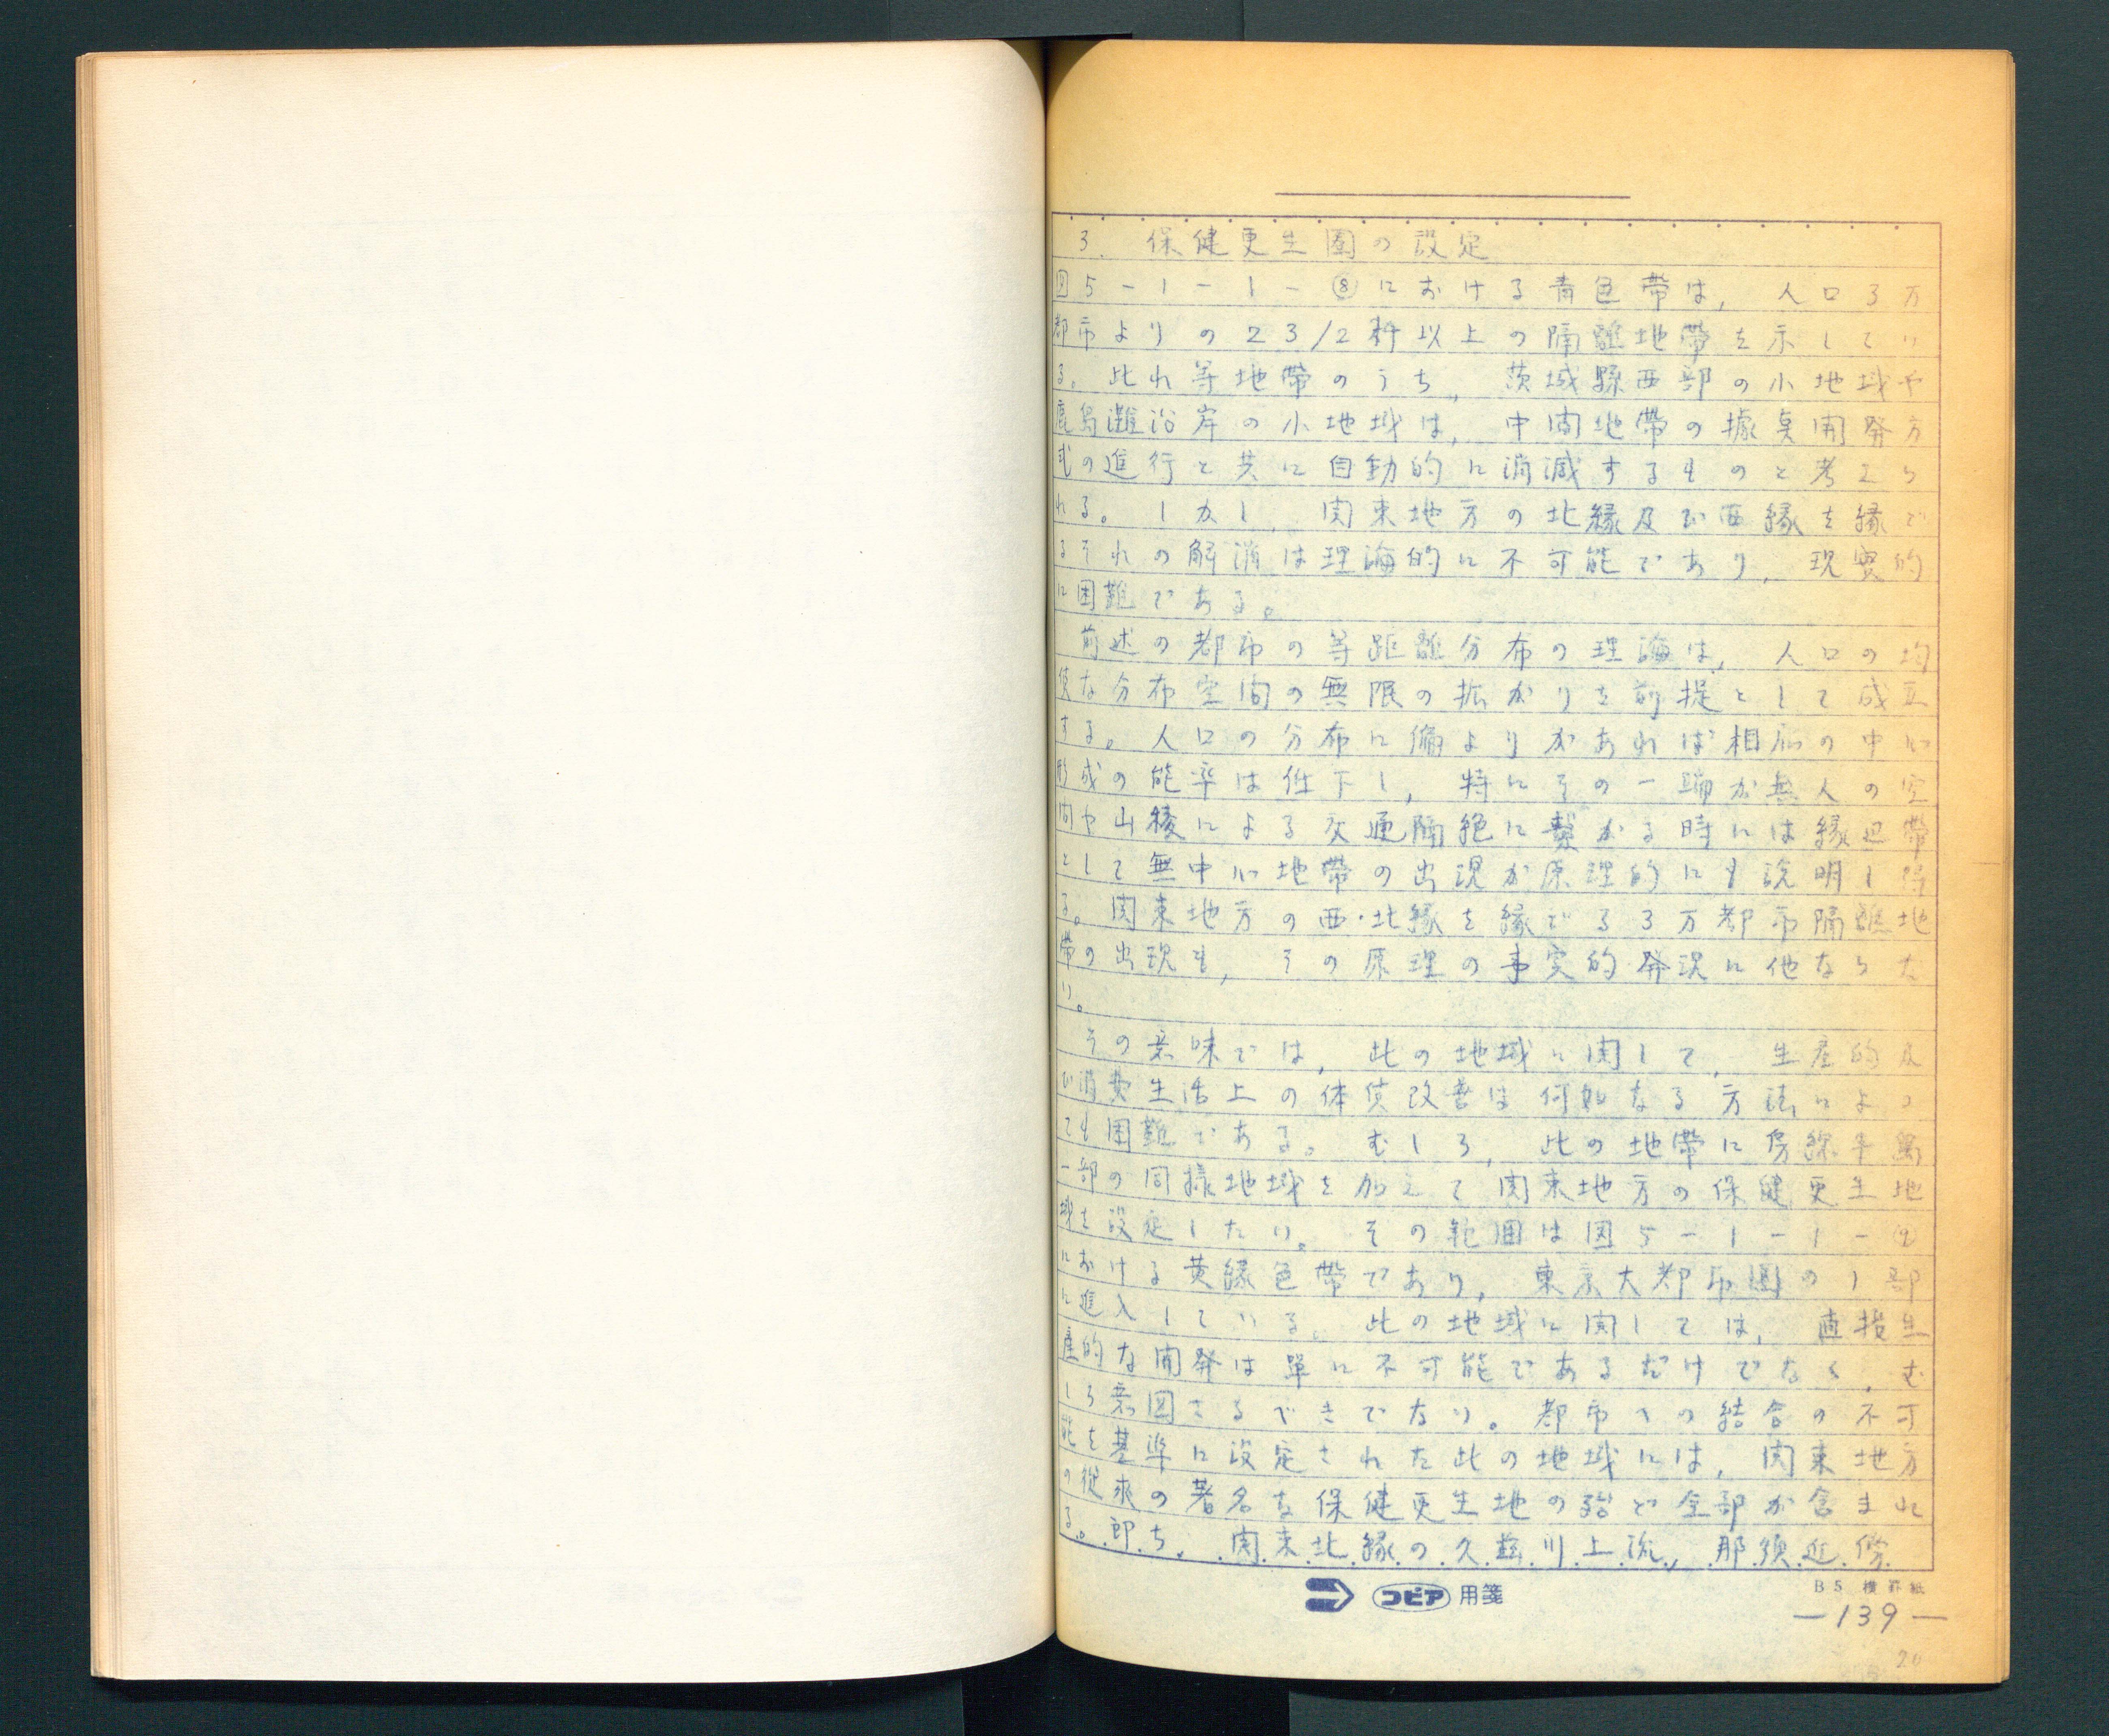 3. 保健更生圏の設定
図5-1-1-⑧における青色帯は, 人口3万
都市よりの23/2粁以上の隔離地帯を示してい
る。此れ等地帯のうち, 茨城縣西部の小地域や
鹿島灘沿岸の小地域は, 中間地帯の據点開発方
式の進行と共に自動的に消滅するものと考えら
れる。しかし, 関東地方の北縁及び西縁を縁ど
るそれの解消は理論的に不可能であり, 現實的
に困難である。
前述の都市の等距離分布の理論は, 人口の均
使な分布空間の無限の拡がりを前提として成立
する。人口の分布に偏よりがあれば相応の中心
形成の能率は低下し, 特にその一端が無人の空
間や山稜による交通隔絶に繋がる時には縁辺帯
として無中心地帯の出現が原理的にも説明し得
る。関東地方の西・北縁を縁どる3万都市隔離地
帯の出現も, その原理の事実的発現に他ならな
い。
その意味では, 此の地域に関して, 生産的及
び消費生活上の体質改善は何如なる方法によっ
ても困難である。むしろ, 此の地帯に房総半島
一部の同様地域を加えて関東地方の保健更生地
域を設定したい。その範囲は図5-1-1-⑨
における黄緑色帯であり, 東京大都市圏の1部
に進入している。此の地域に関しては, 直接生
産的な開発は單に不可能であるだけでなく, む
しろ意図さるべきでない。都市への結合の不可
能を基準に設定された此の地域には, 関東地方
の従来の著名な保健更生地の殆ど全部が含まれ
る。即ち, 関東北縁の久慈川上流, 那須近傍
コピア 用箋
B5 横罫紙
—139—
20